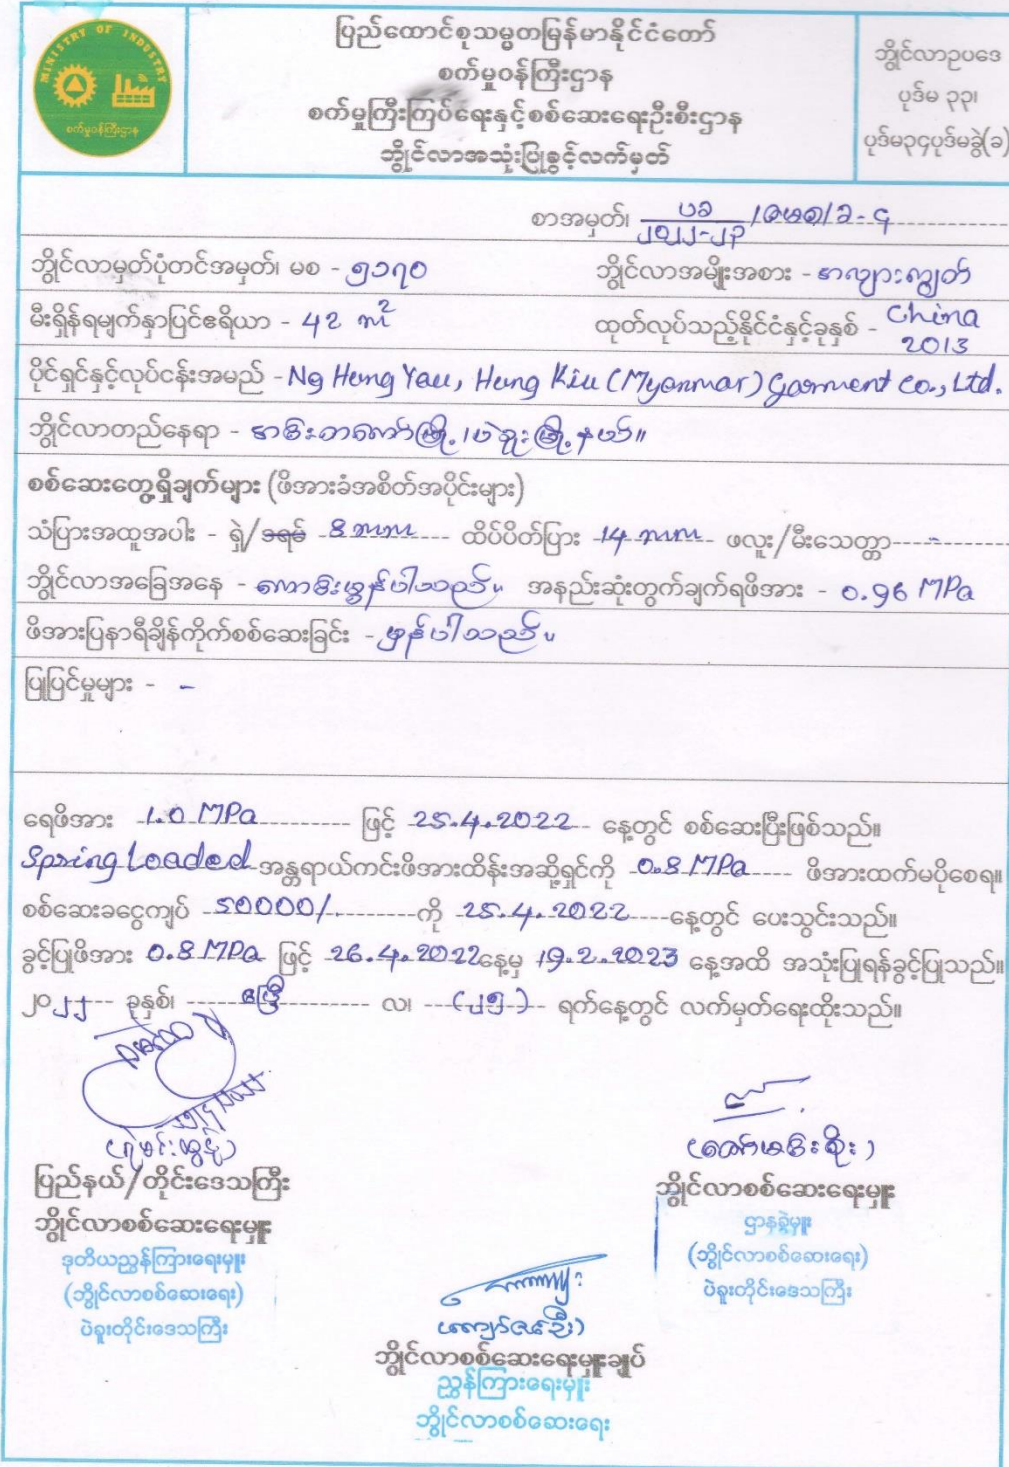 MINISTRY OF INDUSTRY
စက်မှုဝန်ကြီးဌာန
ပြည်ထောင်စုသမ္မတမြန်မာနိုင်ငံတော်
စက်မှုဝန်ကြီးဌာန
စက်မှုကြီးကြပ်ရေးနှင့်စစ်ဆေးရေးဦးစီးဌာန
ဘွိုင်လာအသုံးပြုခွင့်လက်မှတ်
ဘွိုင်လာဥပဒေ
ပုဒ်မ ၃၃၊
ပုဒ်မ၃၄ပုဒ်မခွဲ(ခ)
စာအမှတ်၊ ပခ / ၂၀၂၂-၂၃
ဘွိုင်လာမှတ်ပုံတင်အမှတ်၊ မစ - ၅၁၇၀ ဘွိုင်လာအမျိုးအစား - အလျားကျွတ်
မီးရှိန်ရမျက်နှာပြင်ဧရိယာ - 42 m² ထုတ်လုပ်သည့်နိုင်ငံနှင့်ခုနှစ် - China 2013
ပိုင်ရှင်နှင့်လုပ်ငန်းအမည် - Ng Hung Yau, Hung Kiu (Myanmar) Garment Co., Ltd.
ဘွိုင်လာတည်နေရာ - အင်းတကော်မြို့၊ ပဲခူးမြို့နယ်။
စစ်ဆေးတွေ့ရှိချက်များ (ဖိအားခံအစိတ်အပိုင်းများ)
သံပြားအထူအပါး - ရှဲ/ဒရမ် - 8 mm ထိပ်ပိတ်ပြား - 14 mm ဖလူး/မီးသေတ္တာ -
ဘွိုင်လာအခြေအနေ - ကောင်းမွန်ပါသည်။ အနည်းဆုံးတွက်ချက်ရဖိအား - 0.96 MPa
ဖိအားပြနာရီချိန်ကိုက်စစ်ဆေးခြင်း - မှန်ပါသည်။
ပြုပြင်မှုများ - -
ရေဖိအား 1.0 MPa ဖြင့် 25.4.2022 နေ့တွင် စစ်ဆေးပြီးဖြစ်သည်။
Spring Loaded အန္တရာယ်ကင်းဖိအားထိန်းအဆို့ရှင်ကို 0.8 MPa ဖိအားထက်မပိုစေရ။
စစ်ဆေးခငွေကျပ် 50000/. ကို 25.4.2022 နေ့တွင် ပေးသွင်းသည်။
ခွင့်ပြုဖိအား 0.8 MPa ဖြင့် 26.4.2022 နေ့မှ 19.2.2023 နေ့အထိ အသုံးပြုရန်ခွင့်ပြုသည်။
၂၀၂၂ ခုနှစ်၊ ဧပြီ လ၊ (၂၅) ရက်နေ့တွင် လက်မှတ်ရေးထိုးသည်။
ပြည်နယ်/တိုင်းဒေသကြီး
ဘွိုင်လာစစ်ဆေးရေးမှူး
ဒုတိယညွှန်ကြားရေးမှူး
(ဘွိုင်လာစစ်ဆေးရေး)
ပဲခူးတိုင်းဒေသကြီး
(ဇော်မင်းစိုး)
ဘွိုင်လာစစ်ဆေးရေးမှူး
ဌာနခွဲမှူး
(ဘွိုင်လာစစ်ဆေးရေး)
ပဲခူးတိုင်းဒေသကြီး
(ကျော်ဇင်ဦး)
ဘွိုင်လာစစ်ဆေးရေးမှူးချုပ်
ညွှန်ကြားရေးမှူး
ဘွိုင်လာစစ်ဆေးရေး